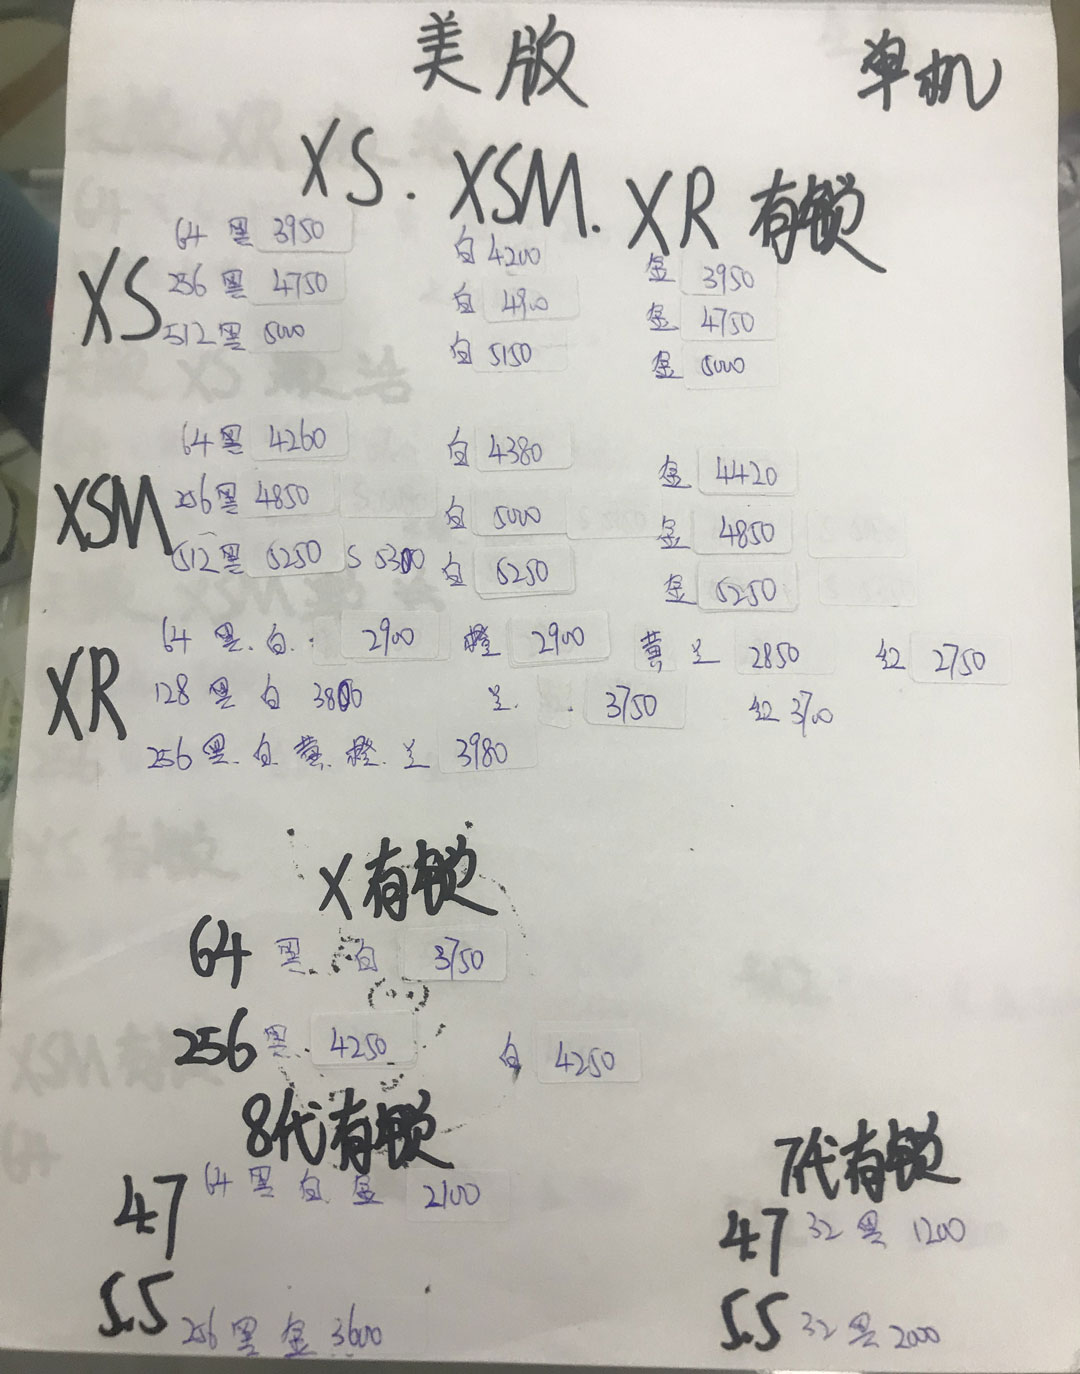 美版 单机
XS. XSM. XR 有锁
XS
64 黑 3950 白 4200 金 3950
256 黑 4750 白 4900 金 4750
512 黑 5000 白 5150 金 5000
XSM
64 黑 4260 白 4380 金 4420
256 黑 4850 白 5000 金 4850
512 黑 5250 S 5300 白 5250 金 5250
XR
64 黑.白. 2900 橙 2900 黄 兰 2850 红 2750
128 黑 白 3800 兰. 3750 红 3700
256 黑.白.黄.橙.兰 3980
X有锁
64 黑. 白 3750
256 黑. 4250 白 4250
8代有锁 7代有锁
4.7 64 黑 白 金 2100 4.7 32 黑 1200
5.5 256 黑 金 3600 5.5 32 黑 2000